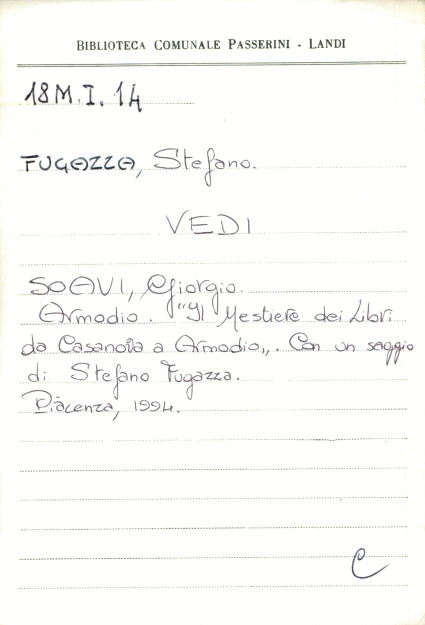 BIBLIOTECA COMUNALE PASSERINI - LANDI
18M.I.14
FUGAZZA, Stefano.
VEDI
SOAVI, Giorgio.
Armodio. "Il Mestiere dei Libri
da Casanova a Armodio„. Con un saggio
di Stefano Fugazza.
Piacenza, 1994.
C